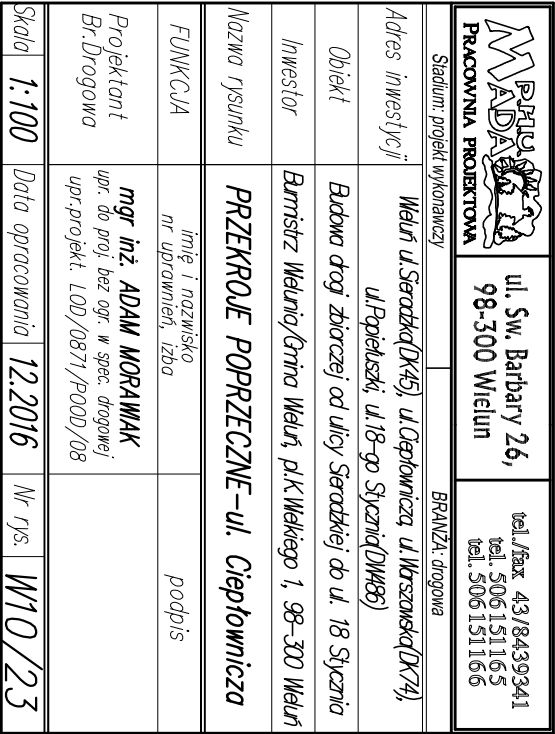 P.H.U.
MADA
PRACOWNIA PROJEKTOWA
ul. Św. Barbary 26,
98-300 Wieluń
tel./fax 43/8439341
tel. 506151165
tel. 506151166
Stadium: projekt wykonawczy
BRANŻA: drogowa
Adres inwestycji
Wieluń ul.Sieradzka(DK45), ul.Ciepłownicza, ul.Warszawska(DK74),
ul.Popiełuszki, ul.18-go Stycznia(DW486)
Obiekt
Budowa drogi zbiorczej od ulicy Sieradzkiej do ul. 18 Stycznia
Inwestor
Burmistrz Wielunia/Gmina Wieluń, pl.K.Wielkiego 1, 98-300 Wieluń
Nazwa rysunku
PRZEKROJE POPRZECZNE-ul. Ciepłownicza
FUNKCJA
imię i nazwisko
nr uprawnień, izba
podpis
Projektant
Br.Drogowa
mgr inż ADAM MORAWIAK
upr. do proj. bez ogr. w spec. drogowej
upr.projekt. LOD/0871/POOD/08
Skala
1:100
Data opracowania
12.2016
Nr rys.
W10/23